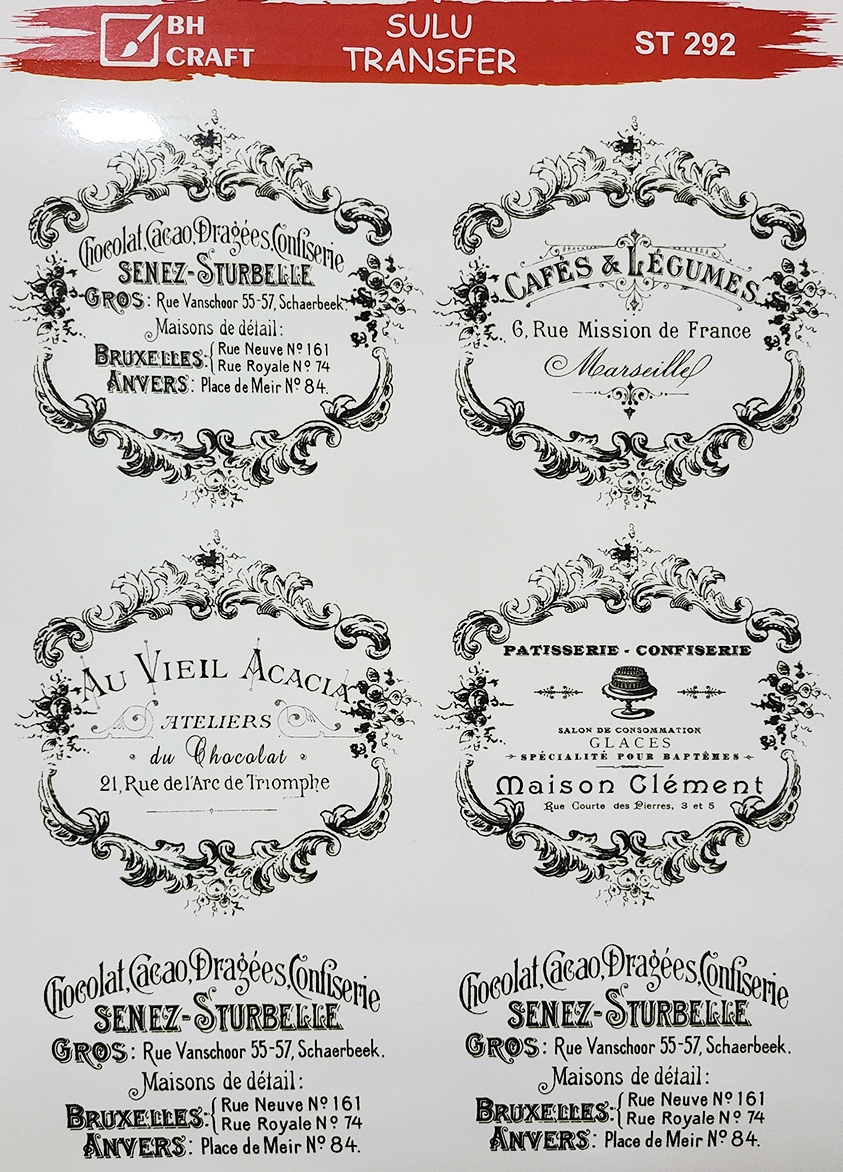 BH CRAFT
SULU TRANSFER
ST 292
Chocolat, Cacao, Dragées, Confiserie
SENEZ-STURBELLE
GROS: Rue Vanschoor 55-57, Schaerbeek.
Maisons de détail:
BRUXELLES: { Rue Neuve Nº 161
Rue Royale Nº 74
ANVERS: Place de Meir Nº 84.
CAFÉS & LÉGUMES
6, Rue Mission de France
Marseille
AU VIEIL ACACIA
ATELIERS
du Chocolat
21, Rue de l'Arc de Triomphe
PATISSERIE - CONFISERIE
SALON DE CONSOMMATION
GLACES
SPÉCIALITÉ POUR BAPTÊMES
Maison Clément
Rue Courte des Pierres, 3 et 5
Chocolat, Cacao, Dragées, Confiserie
SENEZ-STURBELLE
GROS: Rue Vanschoor 55-57, Schaerbeek.
Maisons de détail:
BRUXELLES: { Rue Neuve Nº 161
Rue Royale Nº 74
ANVERS: Place de Meir Nº 84.
Chocolat, Cacao, Dragées, Confiserie
SENEZ-STURBELLE
GROS: Rue Vanschoor 55-57, Schaerbeek.
Maisons de détail:
BRUXELLES: { Rue Neuve Nº 161
Rue Royale Nº 74
ANVERS: Place de Meir Nº 84.